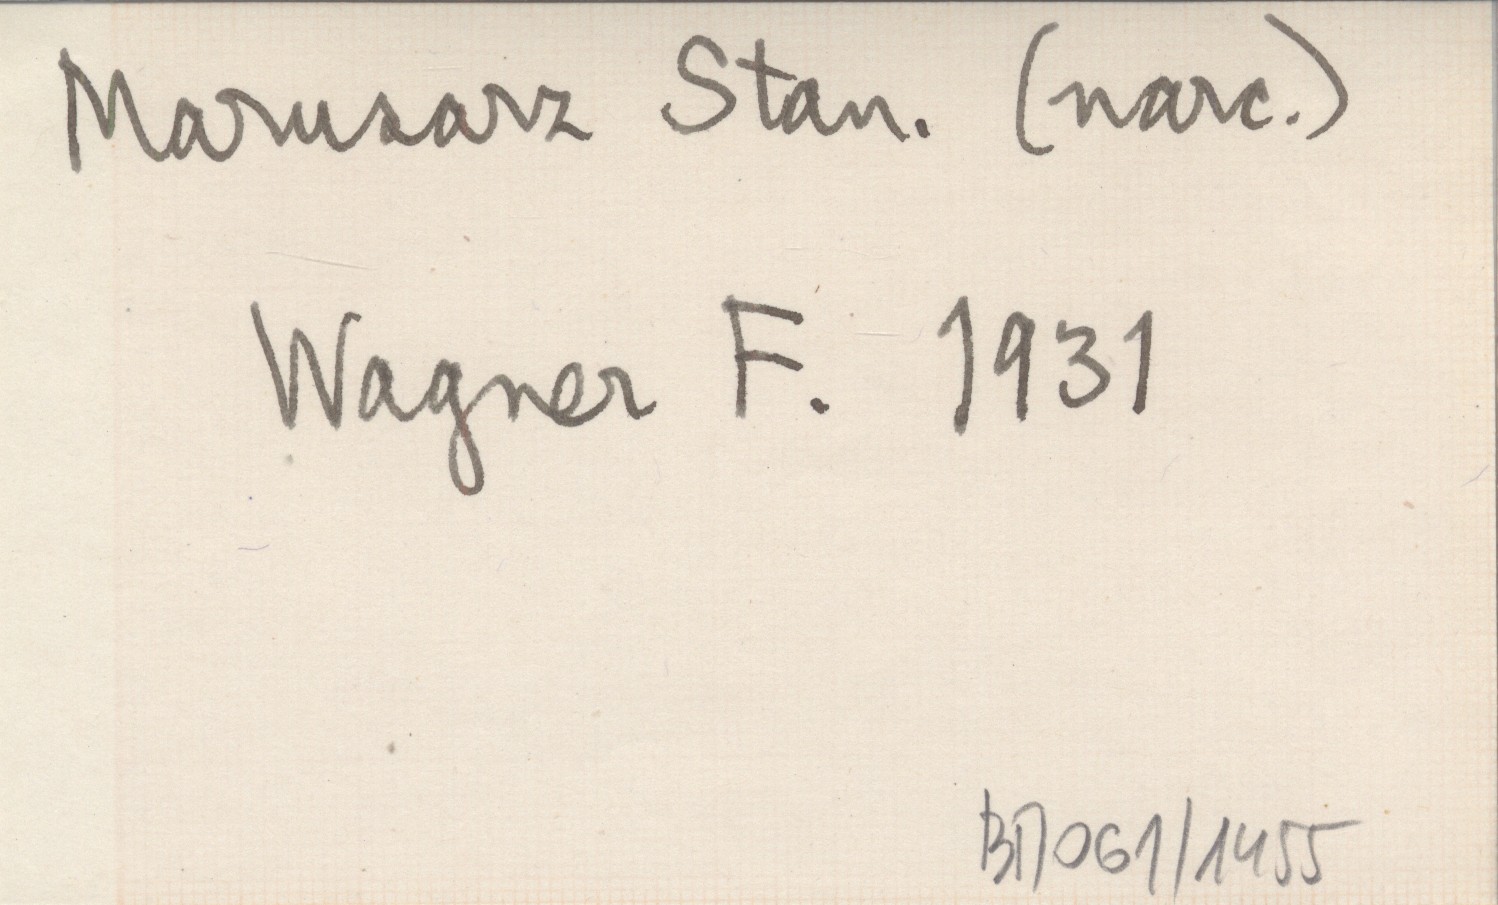 Marusarz Stan. (narc.)
Wagner F. 1931
BN061/1455